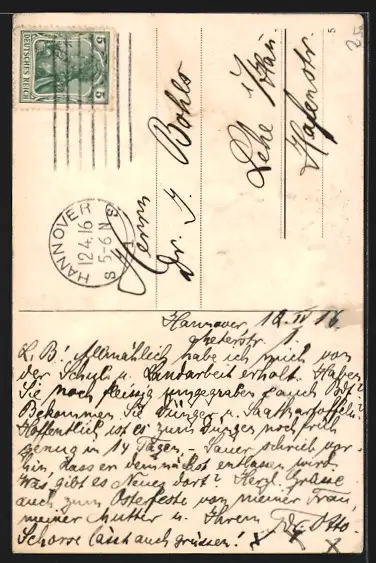 DEUTSCHES REICH
5 5
HANNOVER
12.4.16
5-6 N
S 1 S
Herrn
Dr. J. Bohls
Lehe i/Han
Hafenstr.
Hannover, 12. IV 16.
L. B! Allmählich habe ich mich von
der Schul u. Landarbeit erholt. Haben
Sie noch fleissig umgegraben auch Bdt?
Bekommen Sie Dünger u. Saatkartoffeln?
Hoffentlich ist es zum Dünger noch früh
genug in 14 Tagen. Lauer schrieb vor-
hin, dass er demnächst entlassen wird.
Was gibt es Neues dort? Herzl. Grüsse
auch zum Osterfeste von meiner Frau,
meiner Mutter u. Ihrem Dr. Otto.
Schorse lässt auch grüssen!